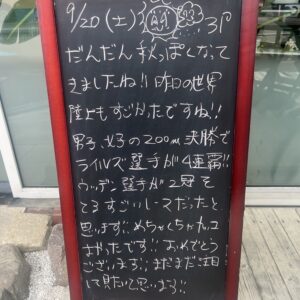 9/20(土) 3P
だんだん秋っぽくなって
きましたね!! 昨日の世界
陸上もすごかったですね!!
男子、女子の200m決勝で
ライルズ選手が4連覇!!
ウッデン選手が2冠を
とるすごいレースだったと
思います!! めちゃくちゃカッコ
よかったです!! おめでとう
ございます!! まだまだ注目
して見たいと思います!!